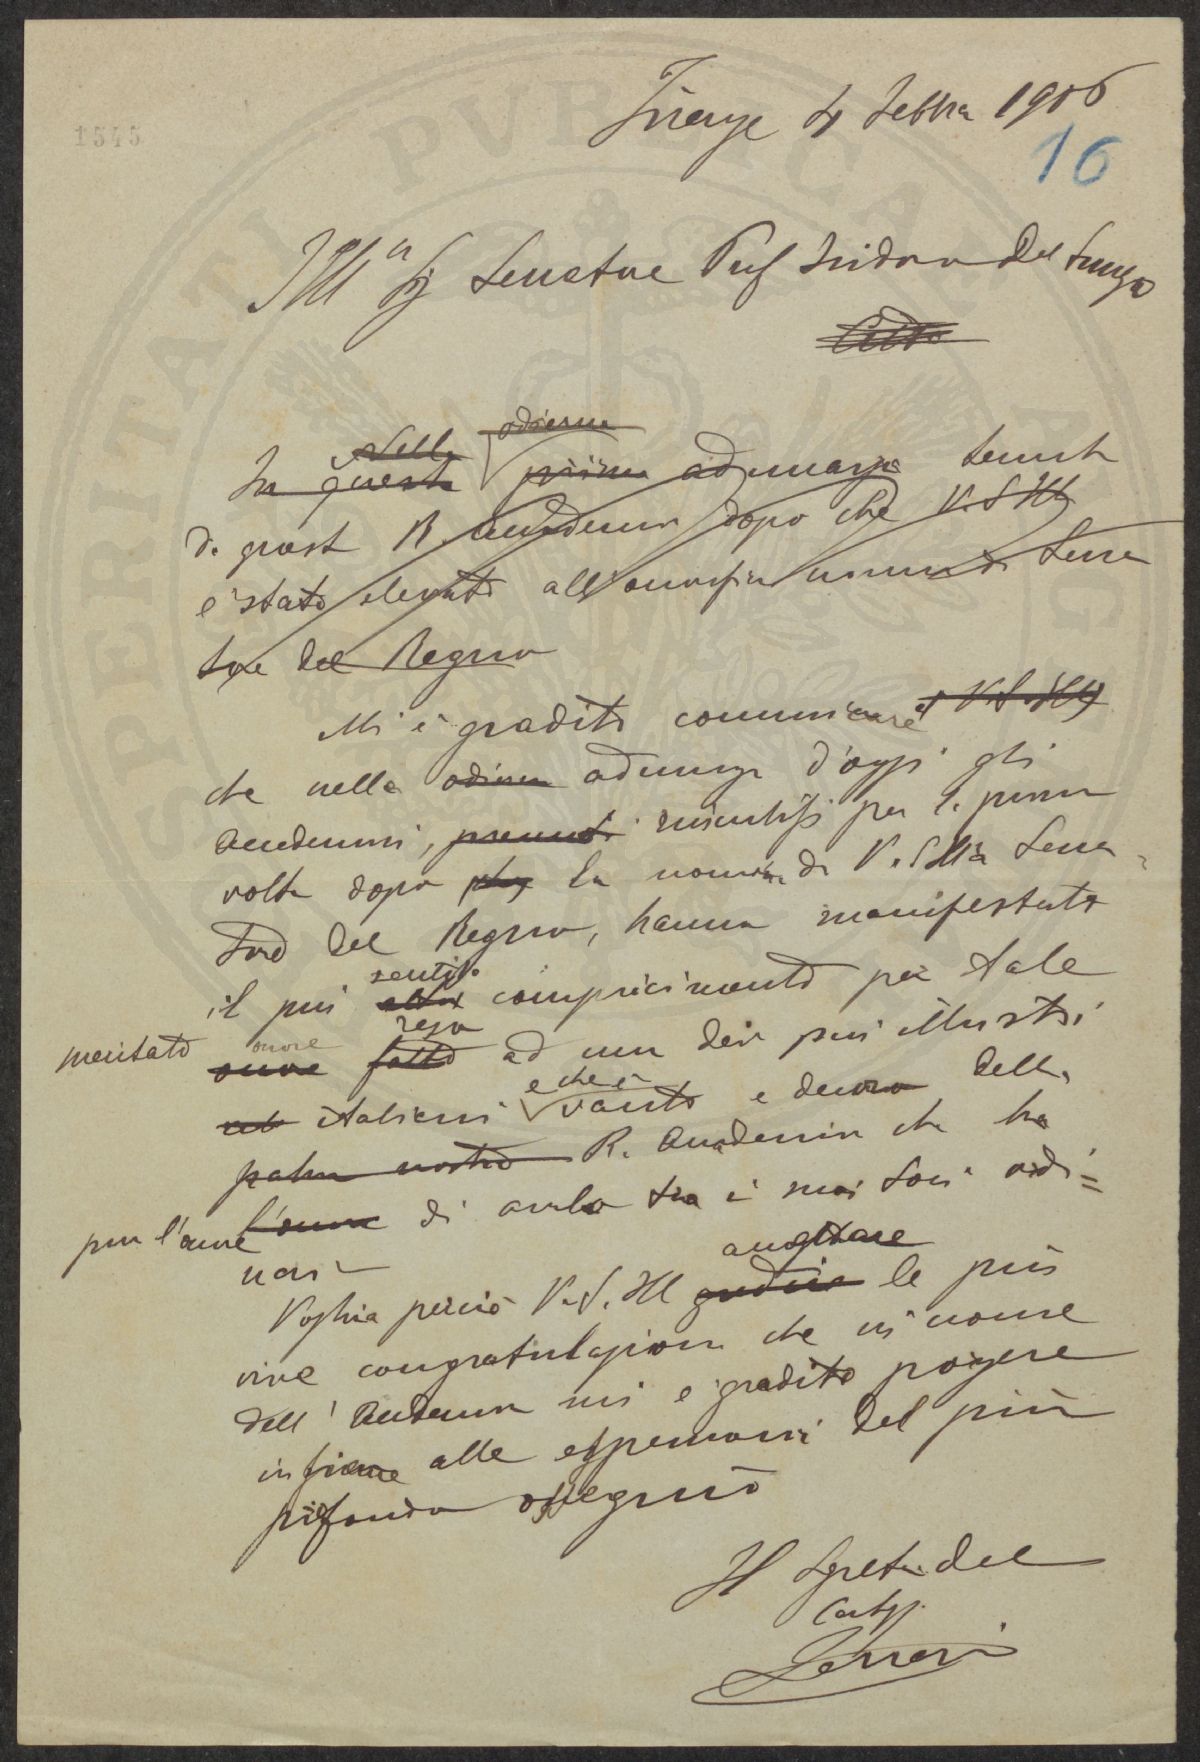 1545
Firenze 4 Febbrʳ 1906
16
Illᵐ Sig Senatore Prof Isidoro Del Lungo
Città
Nella odierna
In questa prima adunanza tenuta
di questa R. Accademia dopo che V. S. Ill
è stato elevato all' onorifica nomina di Sena
tore del Regno
Mi è gradito comunicare a V. S. Ill
che nella odierna adunanza d'oggi gli
Accademici, presenti riunitisi per la prima
volta dopo la nomina di V. S. Illa Sena-
tore del Regno, hanno manifestato
sentito
il più compiacimento per tale
reso
meritato onore
onore fatto ad uno dei più illustri
e che è
italiani vanto e decoro della
patria nostra R. Accademia che ha
pur l'onore l'onore di averlo tra i suoi soci ordi=
nari
accettare
Voglia perciò V. S. Ill gradire le più
vive congratulazioni che in nome
dell' Accademia mi è gradito porgere
insieme alle espressioni del più
profondo ossequio
Il Segretᵒ del
Cartegg.
Ferrari